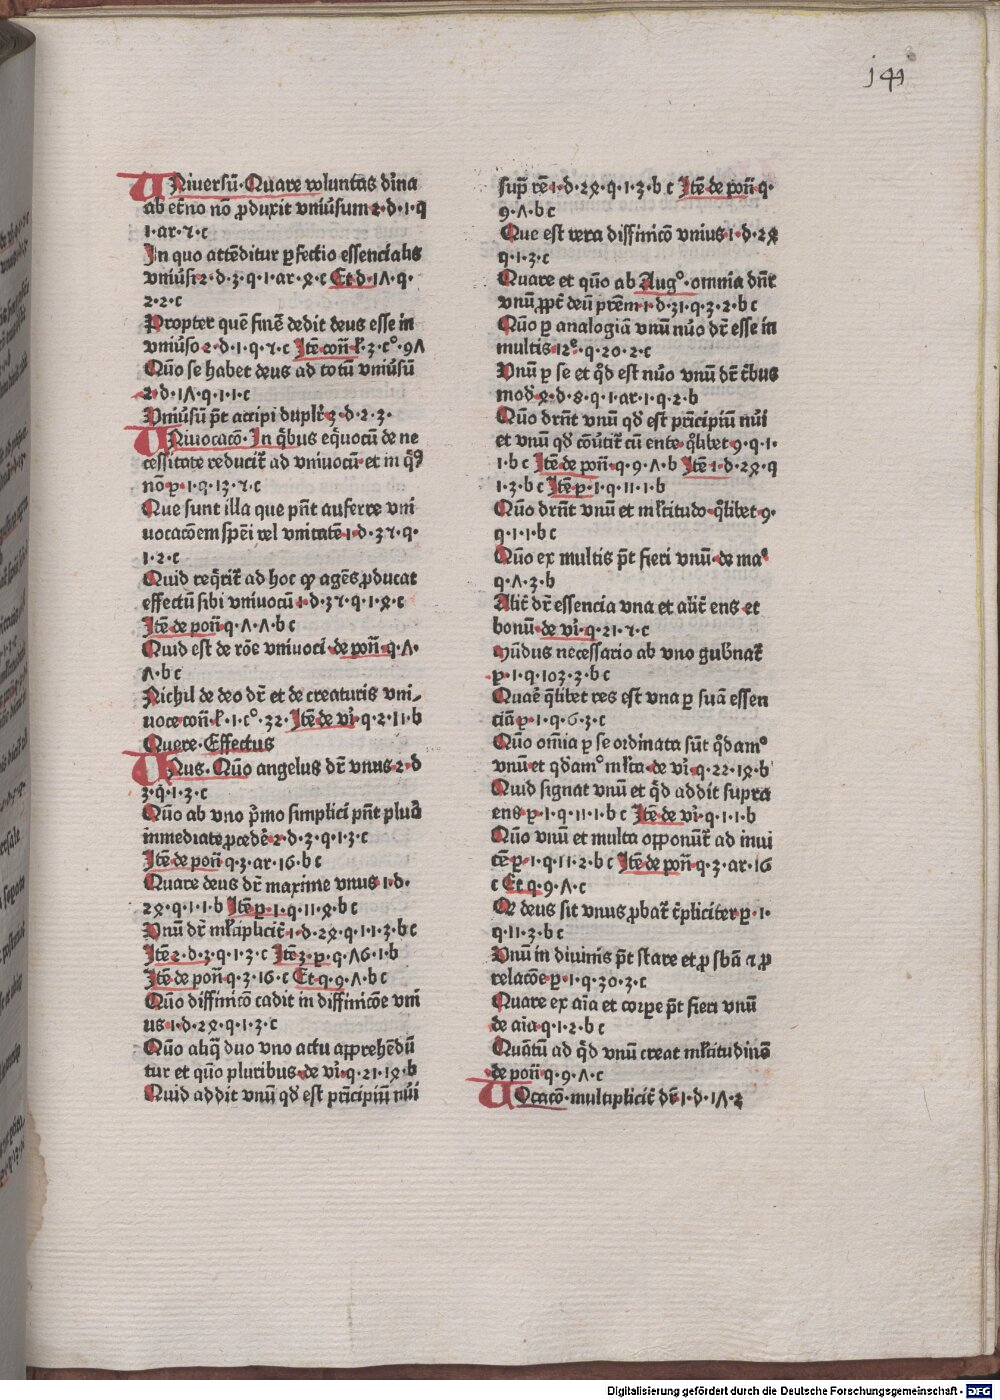 141
UNiuersū·Quare voluntas di̅na
ab et̅no nō ꝓduxit vniu̅sum 2·d·1·q
1·ar·7·c
In quo attēditur ꝑfectio essencialis
vniu̅si 2·d·3·q·1·ar·8·c Et·d·1Λ·q·
2·2·c
Propter quē finē dedit deus esse in
vniu̅so 2·d·1·q·7·c Itē con̅·l̅·3·cº·9Λ
Quō se habet deus ad totū vniu̅sū
2·d·1Λ·q·1·1·c
Vniu̅sū pt̅ accipi duplr̅ 3·d·2·3·
UNiuocacō·In q̅bus eq̅uocū de ne
cessitate reducit̅ ad vniuocū et in q̅bꝫ
nō p·1·q·13·7·c
Que sunt illa que pn̅t auferre vni
uocacōem spēi vel vnitatē 1·d·37·q·
1·2·c
Quid req̅rit̅ ad hoc ꝙ agēs ꝓducat
effectū sibi vniuocū 1·d·37·q·1·8·c
Itē de pon̅ q·Λ·Λ·b c
Quid est de rōe vniuoci·de pon̅·q·Λ·
Λ·b c
Nichil de deo dr̅ et de creaturis vni⸗
uoce con̅·l̅·1·cº·32·Itē de vi̅·q·2·11·b
Quere·Effectus
UNus·Quō angelus dr̅ vnus 2·d
3·q·1·3·c
Quō ab vno p̅mo simplici pn̅t plura̅
immediate ꝓcedē̅ 2·d·3·q·1·3·c
Itē de pon̅ q·3·ar·16·b c
Quare deus dr̅ maxime vnus 1·d·
28·q·1·1·b Itē p·1·q·11·8·b c
Vnū dr̅ ml̅tiplicit̅ 1·d·28·q·1·1·3·bc
Itē 2·d·3·q·1·3·c Itē 3·p·q·Λ6·1·b
Itē de pon̅ q·3·16·c Et·q·9·Λ·b c
Quō diffinicō cadit in diffinicōe vni
us 1·d·28·q·1·3·c
Quō aliq̅ duo vno actu apprehēdū
tur et quō pluribus·de vi̅·q·21·18·b
Quid addit vnū qd̅ est pn̅cipiū nu̅i
sup̅ rē 1·d·28·q·1·3·b c Itē de pon̅ q·
9·Λ·b c
Que est vera diffinicō vnius 1·d·28
q·1·3·c
Quare et quō ab Augº·omnia dn̅r
vnū ꝓpt̅ deū prēm 1·d·31·q·3·2·b c
Quō ꝑ analogiā vnū nu̅o dr̅ esse in
multis 12e·q·20·2·c
Vnū ꝑ se et qd̅ est nu̅o vnū dr̅ t̅bus
mod̅ 8·d·8·q·1·ar·1·q·2·b
Quō drn̅t vnū qd̅ est pn̅cipiū nu̅i
et vnū qd̅ cōu̅tit̅ cū ente·q̅libet 9·q·1·
1·b c Itē de pon̅·q·9·Λ·b Itē 1·d·28·q
1·3·b c Itē p·1·q·11·1·b
Quō drn̅t vnū et ml̅titudo·q̅libet 9·
q·1·1·b c
Quō ex multis pt̅ fieri vnū·de maº
q·Λ·3·b
Alit̅ dr̅ essencia vna et alit̅ ens et
bonū·de vi̅·q·21·7·c
Mūdus necessario ab vno gub̅nat̅
p·1·q·103·3·b c
Quāē q̅libet res est vna ꝑ suā essen
ciā p·1·q·6·3·c
Quō om̅ia ꝑ se ordinata sūt q̅damº
vnū et q̅damº ml̅ta·de vi̅·q·22·18·b
Quid signat vnū et qd̅ addit supra
ens p·1·q·11·1·b c Itē de vi̅·q·1·1·b
Quō vnū et multa opponūt̅ ad inui
cē p·1·q·11·2·b c Itē de pon̅·q·3·ar·16
c Et·q·9·Λ·c
Q̅ deus sit vnus ꝓbat̅ t̅pliciter p·1·
q·11·3·b c
Vnū in diuinis pt̅ stare et ꝑ sb̅a̅ ⁊ ꝑ
relacōe p·1·q·30·3·c
Quare ex aīa et corpe pt̅ fieri vnū
de aīa q·1·2·b c
Quātū ad qd̅ vnū creat ml̅titudinē
de pon̅ q·9·Λ·c
UOcacō·multiplicit̅ dr̅ 1·d·1Λ·2
Digitalisierung gefördert durch die Deutsche Forschungsgemeinschaft · DFG